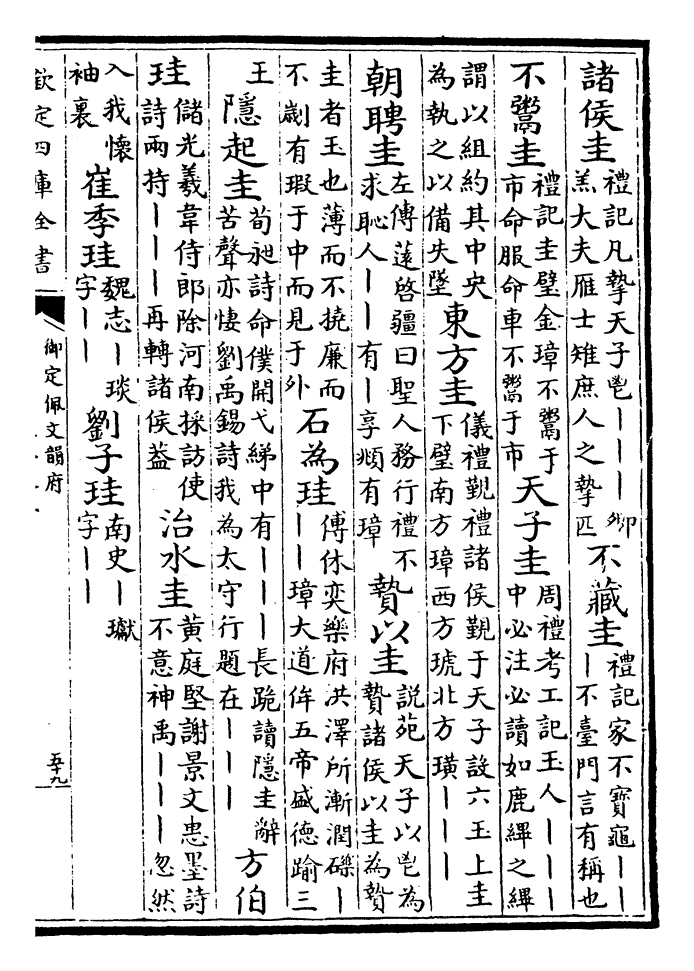 諸侯圭
禮記凡摯天子鬯｜｜｜卿
羔大夫雁士雉庶人之摯匹
不藏圭
禮記家不寶龜｜｜
｜不臺門言有稱也
不鬻圭
禮記圭璧金璋不鬻于
市命服命車不鬻于市
天子圭
周禮考工記玉人｜｜｜
中必注必讀如鹿繂之繂
謂以組約其中央
為執之以備失墜
東方圭
儀禮覲禮諸侯覲于天子設六玉上圭
下璧南方璋西方琥北方璜｜｜｜
朝聘圭
左傳薳啓疆曰聖人務行禮不
求恥人｜｜有｜享頫有璋
贄以圭
說苑天子以鬯為
贄諸侯以圭為贄
圭者玉也薄而不撓廉而
不劌有瑕于中而見于外
石為珪
傅休奕樂府洪澤所漸潤礫｜
｜｜璋大道侔五帝盛德踰三
王
隱起圭
荀昶詩命僕開弋綈中有｜｜｜長跪讀隱圭辭
苦聲亦悽劉禹錫詩我為太守行題在｜｜｜
方伯
珪
儲光羲韋侍郎除河南採訪使
詩兩持｜｜｜再轉諸侯葢
治水圭
黃庭堅謝景文惠墨詩
不意神禹｜｜｜忽然
入我懷
袖裏
崔季珪
魏志｜琰
字｜｜
劉子珪
南史｜瓛
字｜｜
欽定四庫全書
御定佩文韻府
五九